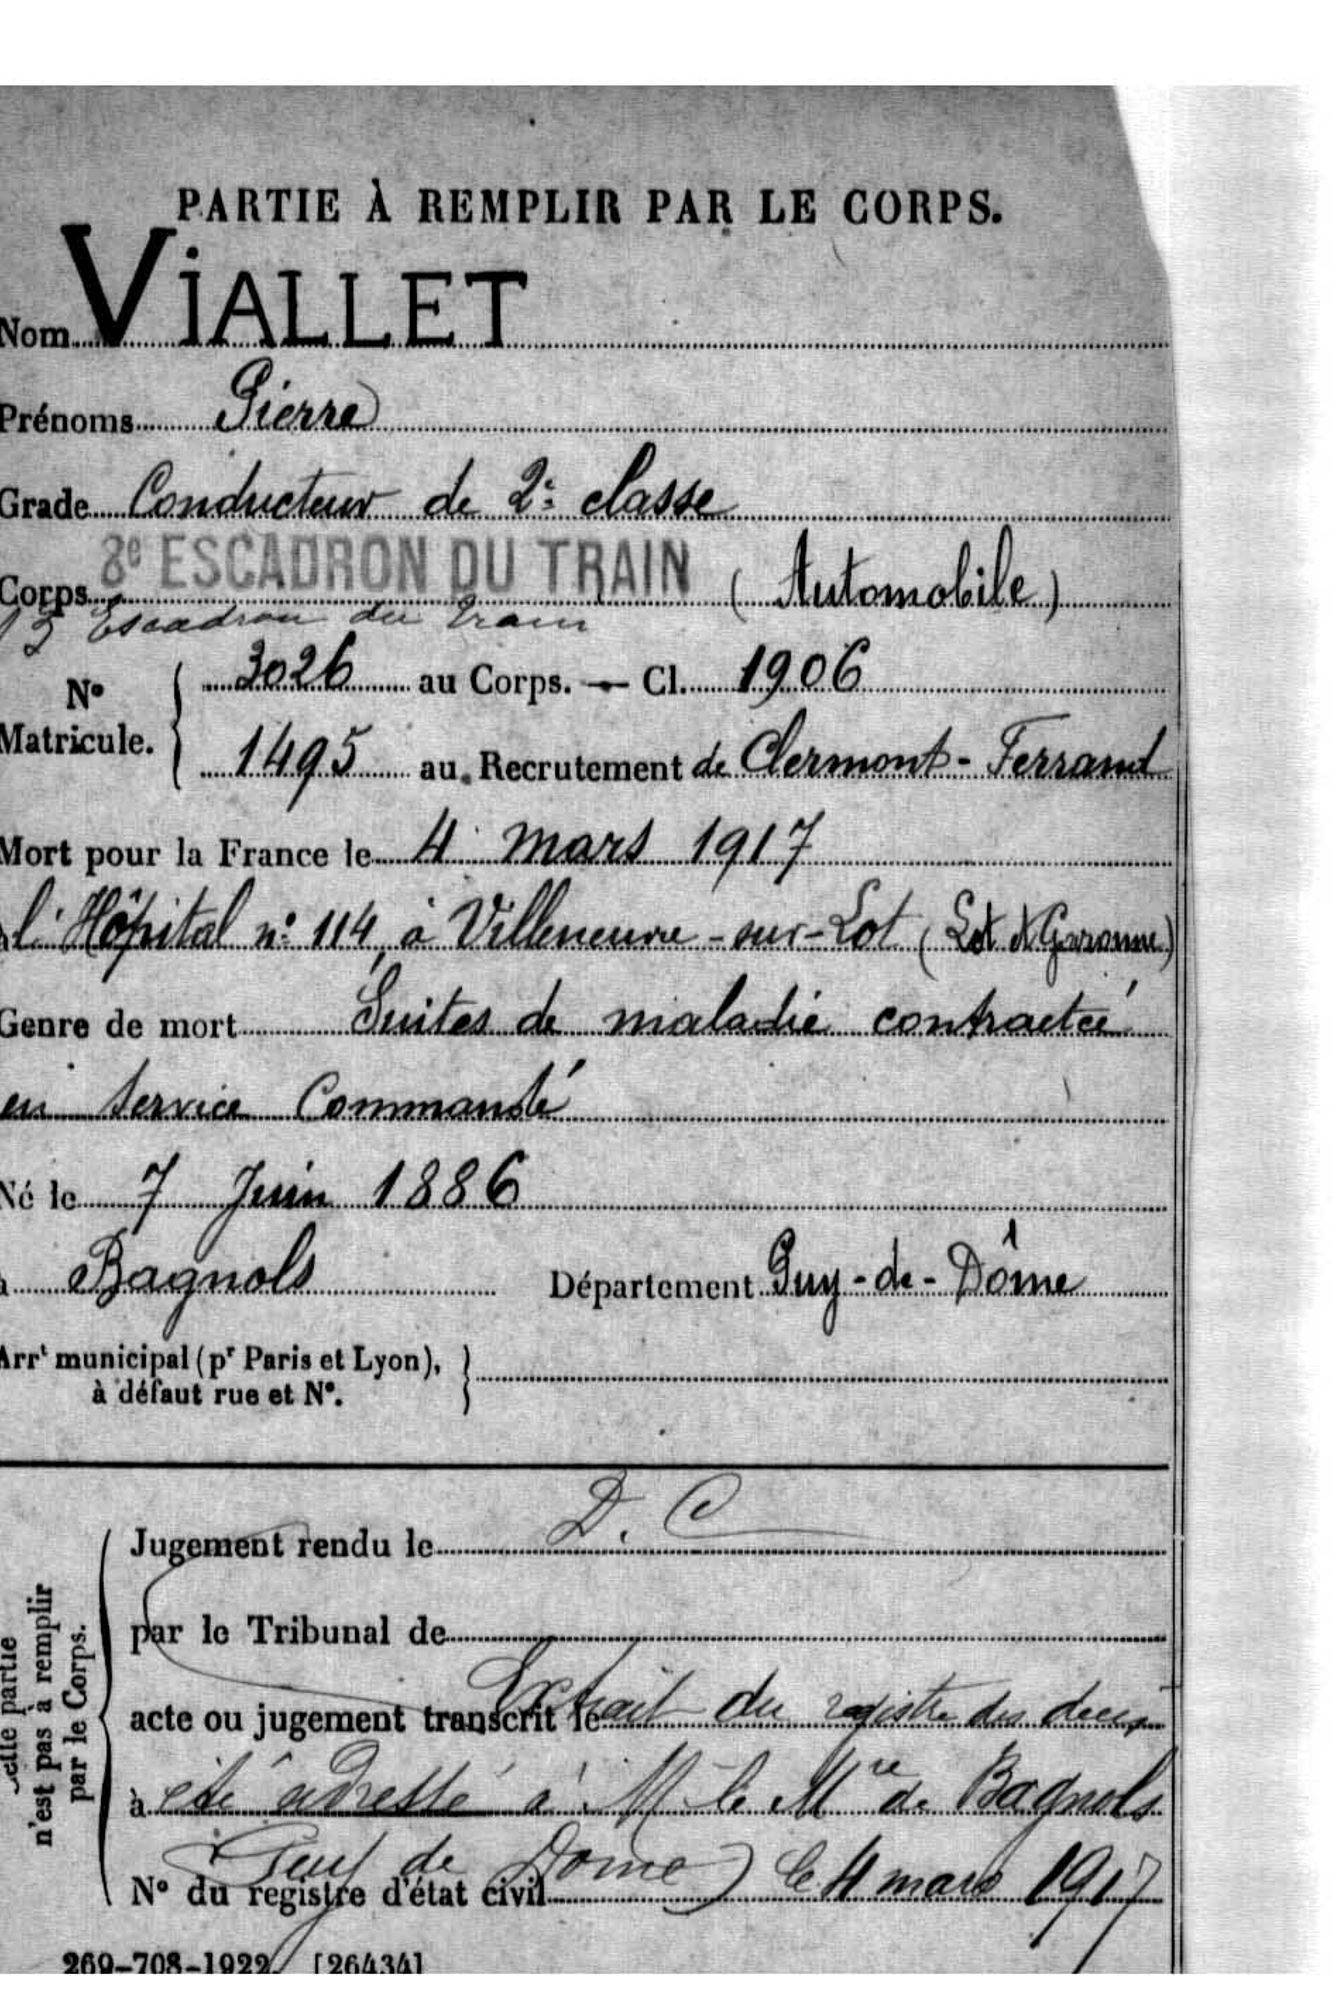 PARTIE À REMPLIR PAR LE CORPS.
Nom VIALLET
Prénoms Pierre
Grade Conducteur de 2e classe
Corps 8e ESCADRON DU TRAIN (Automobile)
13 Escadron du Train
N° Matricule. { 3026 au Corps. — Cl. 1906
1495 au Recrutement de Clermont-Ferrand
Mort pour la France le 4 mars 1917
à l'Hôpital n° 114, à Villeneuve-sur-Lot (Lot & Garonne)
Genre de mort Suites de maladie contractée
en service Commandé
Né le 7 Juin 1886
à Bagnols Département Puy-de-Dôme
Arrt municipal (pr Paris et Lyon), }
à défaut rue et N°.
D. C
Jugement rendu le
par le Tribunal de
acte ou jugement transcrit le Extrait du registre des décès
à été adressé à M le Mre de Bagnols
(Puy de Dome) le 4 mars 1917
N° du registre d'état civil
Cette partie
n'est pas à remplir
par le Corps.
269-708-1922 [26434]